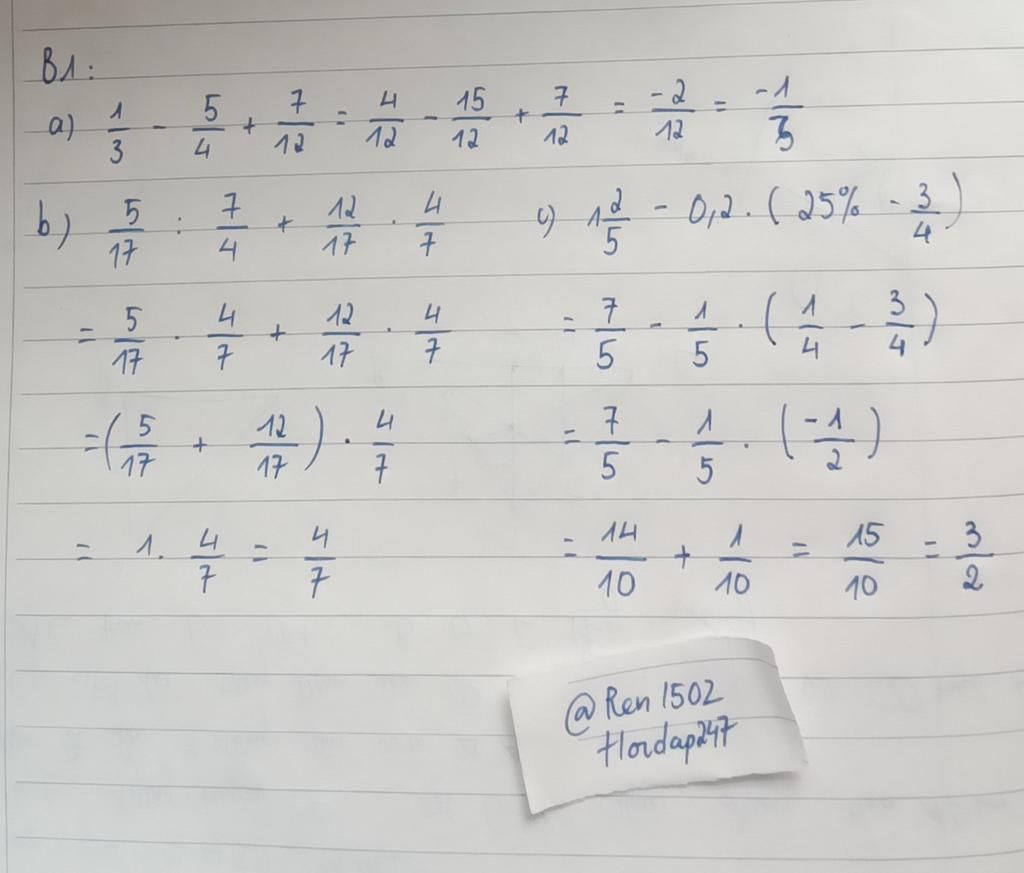 B1:
a) 1/3 - 5/4 + 7/12 = 4/12 - 15/12 + 7/12 = -2/12 = -1/3
b) 5/17 : 7/4 + 12/17 . 4/7
= 5/17 . 4/7 + 12/17 . 4/7
= (5/17 + 12/17) . 4/7
= 1. 4/7 = 4/7
c) 1 2/5 - 0,2. (25% - 3/4)
= 7/5 - 1/5 . (1/4 - 3/4)
= 7/5 - 1/5 . (-1/2)
= 14/10 + 1/10 = 15/10 = 3/2
@Ren1502
Hordap247